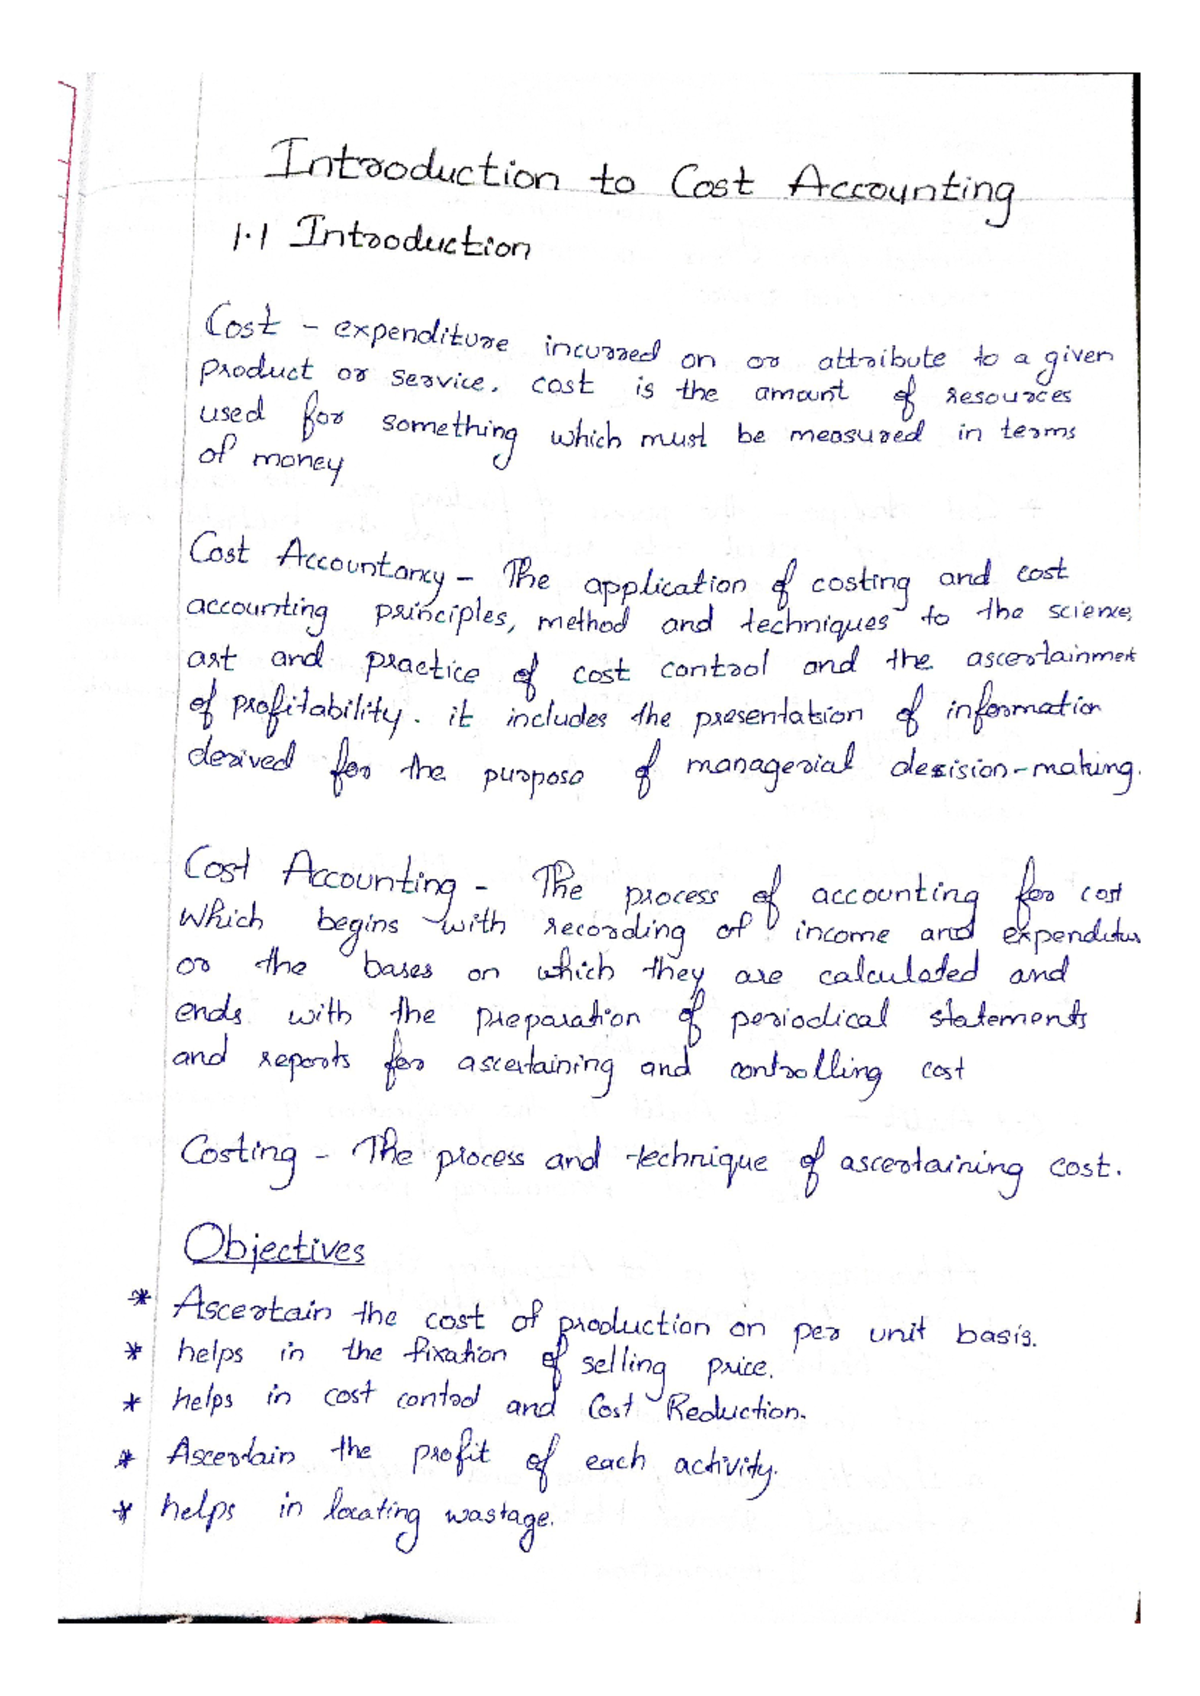 Introduction to Cost Accounting
1.1 Introduction
Cost - expenditure incurred on or attribute to a given
product or service. cost is the amount of resources
used for something which must be measured in terms
of money
Cost Accountancy - The application of costing and cost
accounting principles, method and techniques to the science,
art and practice of cost control and the ascertainment
of profitability. it includes the presentation of information
derived for the purpose of managerial decision-making.
Cost Accounting - The process of accounting for cost
which begins with recording of income and expenditure
or the bases on which they are calculated and
ends with the preparation of periodical statements
and reports for ascertaining and controlling cost
Costing - The process and technique of ascertaining cost.
Objectives
* Ascertain the cost of production on per unit basis.
* helps in the fixation of selling price.
* helps in cost control and Cost Reduction.
* Ascertain the profit of each activity.
* helps in locating wastage.